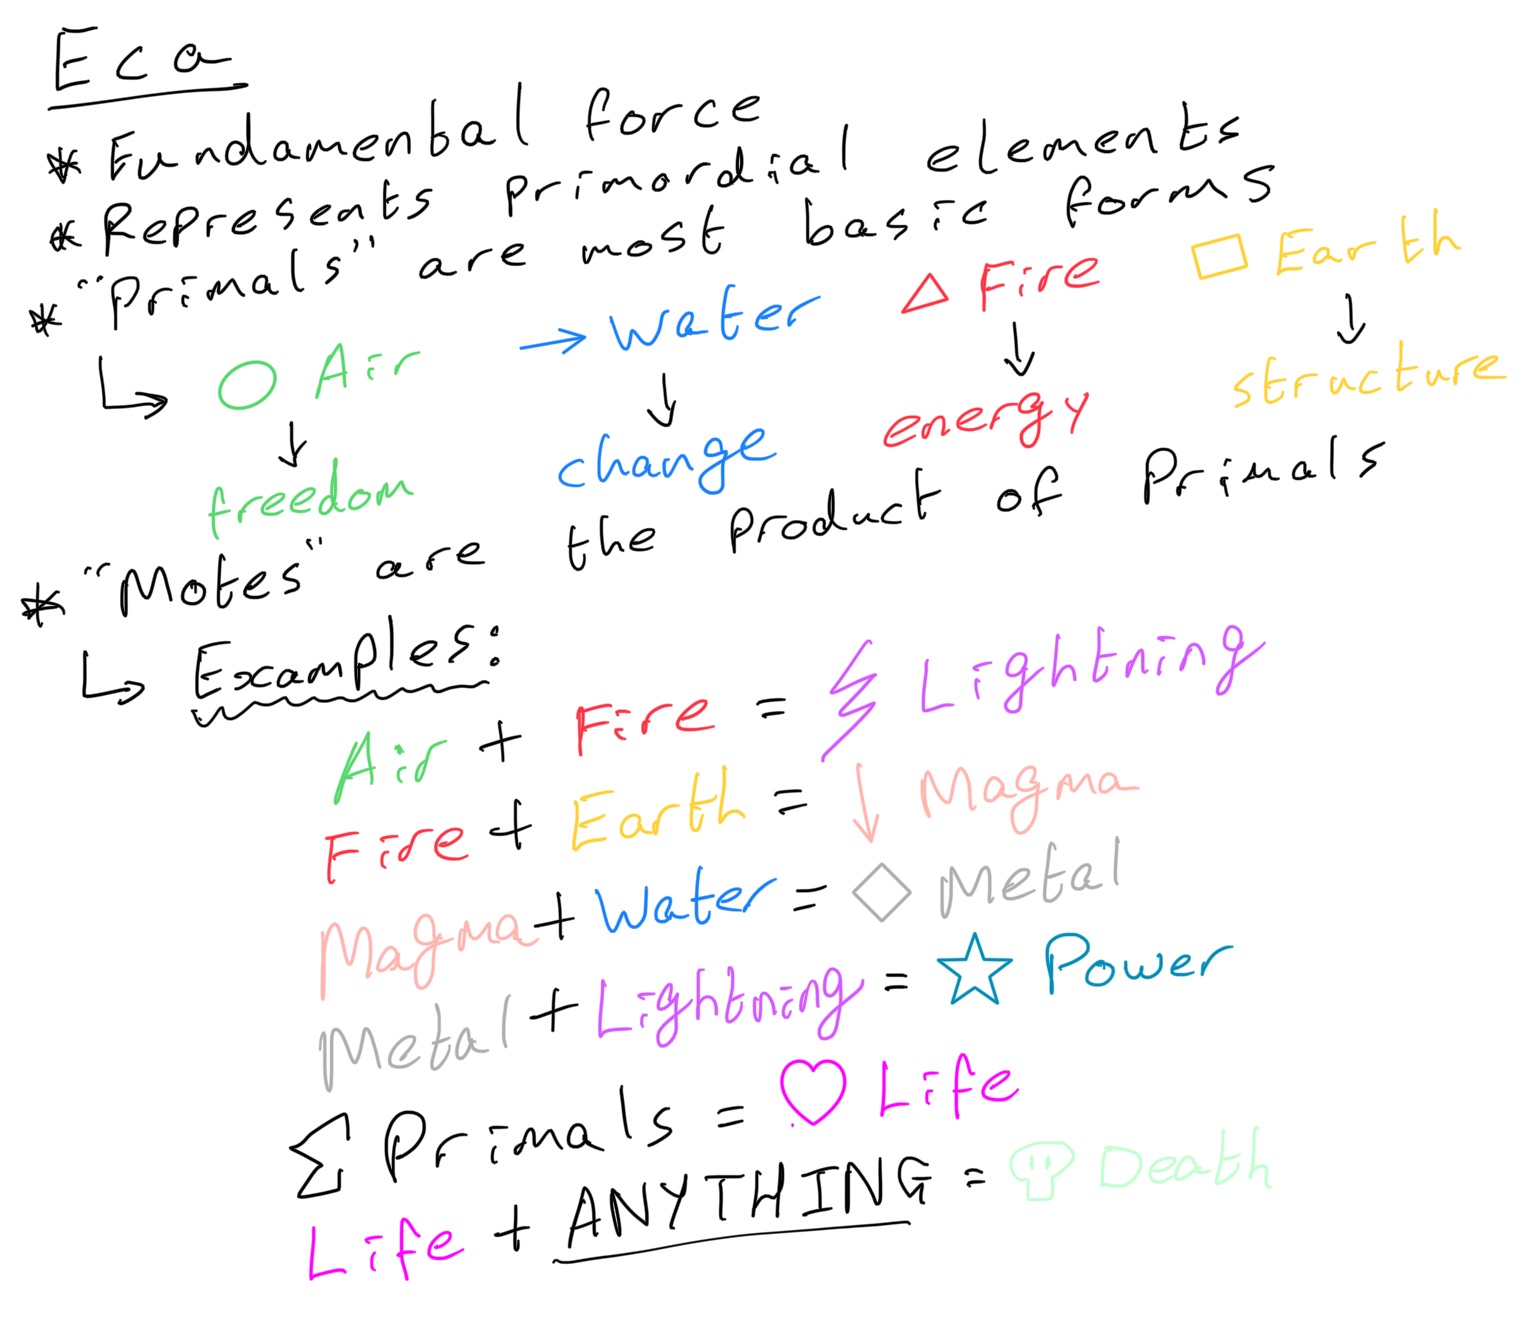 Eca
* Fundamental force
* Represents primordial elements
* "Primals" are most basic forms
↳ ○ Air → Water △ Fire ▭ Earth
↓ ↓ ↓ ↓
freedom change energy structure
* "Motes" are the product of Primals
↳ Examples:
Air + Fire = Lightning
Fire + Earth = ↓ Magma
Magma + Water = ◇ Metal
Metal + Lightning = ☆ Power
Σ Primals = ♡ Life
Life + ANYTHING = 💀 Death